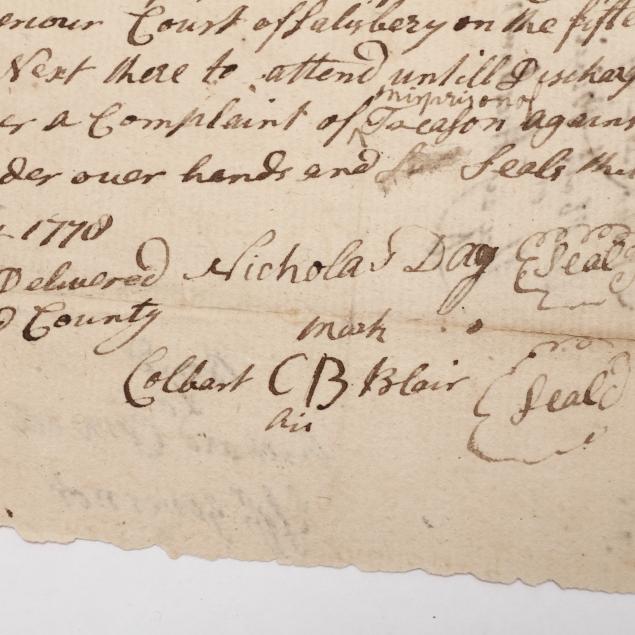 eriour Court of Salisbery on the fifte
Next there to attend untill Discharg
misprizon of
er a Complaint of Treason against
der over hands and Seals the
1778
Delivered Nicholas Day Seal
County
mark
Colbart CB Blair Seald
his